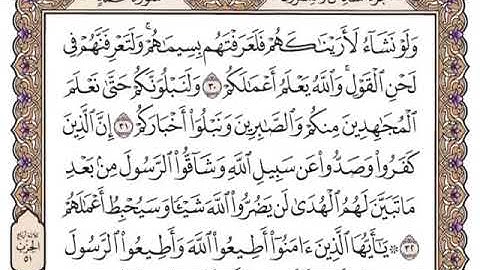 وَلَوْ نَشَآءُ لَأَرَيْنَٰكَهُمْ فَلَعَرَفْتَهُم بِسِيمَٰهُمْ ۚ وَلَتَعْرِفَنَّهُمْ فِى
لَحْنِ ٱلْقَوْلِ ۚ وَٱللَّهُ يَعْلَمُ أَعْمَٰلَكُمْ ٣٠ وَلَنَبْلُوَنَّكُمْ حَتَّىٰ نَعْلَمَ
ٱلْمُجَٰهِدِينَ مِنكُمْ وَٱلصَّٰبِرِينَ وَنَبْلُوَا۟ أَخْبَارَكُمْ ٣١ إِنَّ ٱلَّذِينَ
كَفَرُوا۟ وَصَدُّوا۟ عَن سَبِيلِ ٱللَّهِ وَشَآقُّوا۟ ٱلرَّسُولَ مِنۢ بَعْدِ
مَا تَبَيَّنَ لَهُمُ ٱلْهُدَىٰ لَن يَضُرُّوا۟ ٱللَّهَ شَيْـًٔا وَسَيُحْبِطُ أَعْمَٰلَهُمْ
٣٢ ۞ يَٰٓأَيُّهَا ٱلَّذِينَ ءَامَنُوٓا۟ أَطِيعُوا۟ ٱللَّهَ وَأَطِيعُوا۟ ٱلرَّسُولَ
الحزب
٥١